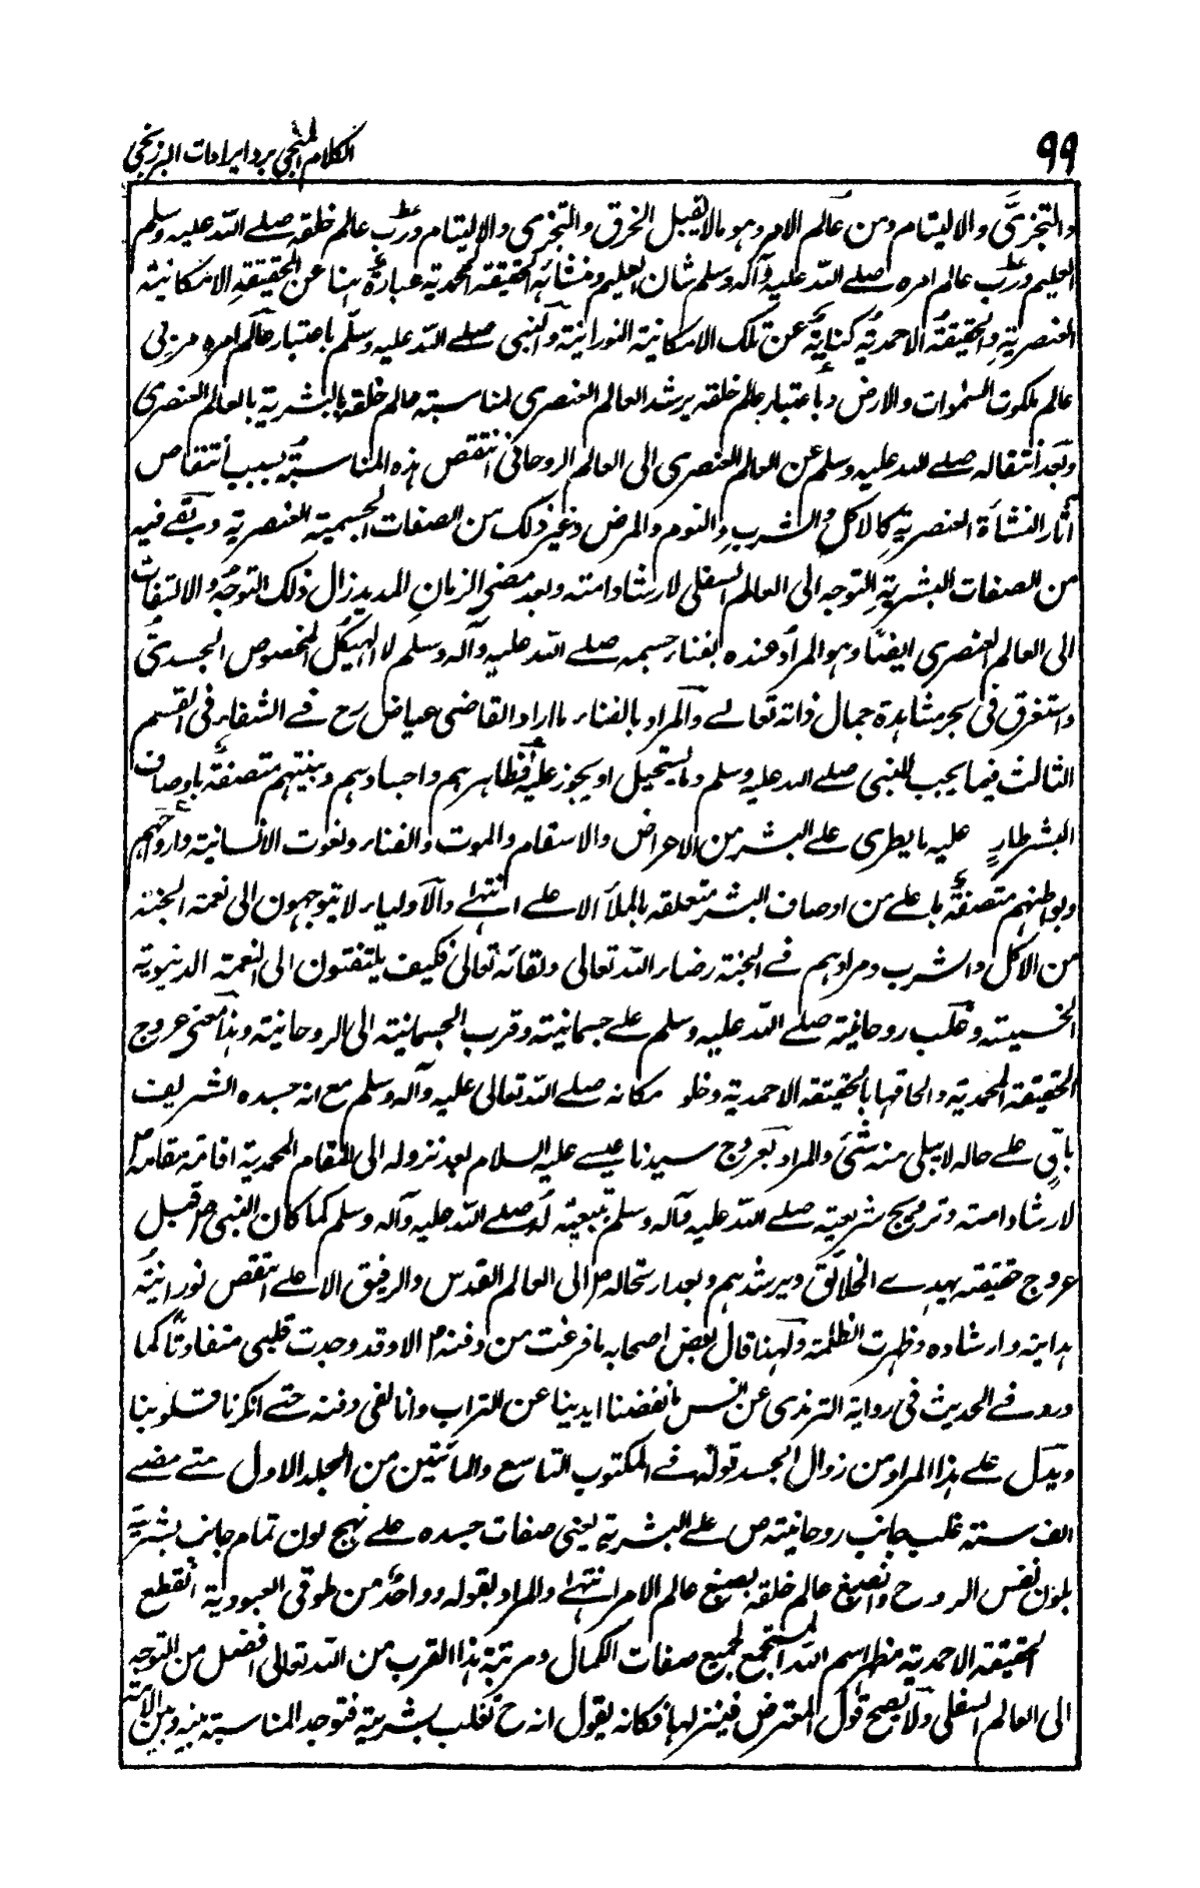 ٩٩
الكلام المنجى برد ايرادات البرزنجى
والتجزى والالتيام ومن عالم الامر وهو ما لا يقبل الخرق والتجزى والالتيام ورب عالم خلقه صلے اللہ عليه وسلم
العليم ورب عالم امره صلے اللہ عليه وآله وسلم شان العليم ومنشائه الحقيقة المحمدية عبارة هنا عن الحقيقة الامكانية
العنصرية والحقيقة الاحمدية كناية عن تلك الامكانية النورانية والنبى صلے اللہ عليه وسلم باعتبار عالم امره مربى
عالم ملكوت السموات والارض وباعتبار عالم خلقه يرشد العالم العنصرى لمناسبته عالم خلقه بالبشرية بالعالم العنصرى
وبعد انتقاله صلے اللہ عليه وسلم عن العالم العنصرى الى العالم الروحانى انتقص هذه المناسبة بسبب انتقاص
آثار النشأة العنصرية كالاكل والشرب والنوم والمرض وغير ذلك من الصفات الجسمية العنصرية وبقے فيه
من الصفات البشرية التوجه الى العالم السفلى لارشاد امته وبعد مضى الزمان المديد زال ذلك التوجه والالتفات
الى العالم العنصرى ايضا وهو المراد عنده بفناء جسمه صلے اللہ عليه وآله وسلم لا الهيكل المخصوص الجسدى
واستغرق فى بحر مشاهدة جمال ذاته تعالے والمراد بالفناء ما اراد القاضى عياض رح فے الشفاء فى القسم
الثالث فيما يجب للنبى صلے اللہ عليه وسلم وما يستحيل او يجوز عليه فظاهرهم واجسادهم وبنيتهم متصفة باوصاف
البشر طار عليه ما يطرى علے البشر من الاعراض والاسقام والموت والفناء ونعوت الانسانية وارواحهم
وبواطنهم متصفة باعلے من اوصاف البشر متعلقه بالملأ الاعلے انتهے والاولياء لا يتوجهون الى نعمة الجنة
من الاكل والشرب ومرادهم فے الجنة رضاء اللہ تعالى ولقائه تعالى فكيف يلتفتون الى النعمة الدنيوية
الخسيسة وغلب روحانية صلے اللہ عليه وسلم علے جسمانيته وقرب الجسمانية الى الروحانية وهذا معنى عروج
الحقيقة المحمدية والحاقها بالحقيقة الاحمدية وخلو مكانه صلے اللہ تعالى عليه وآله وسلم مع انه جسده الشريف
باق علے حاله لا يبلى منه شئ والمراد بعروج سيدنا عيسے عليه السلام بعد نزوله الى المقام المحمدية اقامته مقامه
لارشاد امته وترويج شريعته صلے اللہ عليه وآله وسلم بتبعية له صلے اللہ عليه وآله وسلم كما كان النبى ص قبل
عروج حقيقته يهدے الخلائق ويرشدهم وبعد ارتحاله الى العالم القدس والرفيق الاعلے انتقص نورانية
هدايته وارشاده وظهرت الظلمة ولهذا قال بعض اصحابه ما فرغت من دفنه الا وقد وجدت قلبى متفاوتا كما
ورد فے الحديث فى رواية الترمذى عن انس ما نفضنا ايدينا عن التراب وانا لفى دفنه حتے انكرنا قلوبنا
ويدل علے هذا المراد من زوال الجسد قوله فے المكتوب التاسع والمأتين من الجلد الاول متے مضے
الف سنة غلب جانب روحانيته ص علے البشرية يعنى صفات جسده علے نهج لون تمام جانب بشريته
بلون نفس الروح وانصبغ عالم خلقه بصبغ عالم الامر انتهے والمراد بقوله وواحد من طوقى العبودية انقطع
الحقيقة الاحمدية مظهر اسم اللہ المستجمع لجميع صفات الكمال ومرتبة هذا القرب من اللہ تعالى افضل من التوجه
الى العالم السفلى ولا يصح قول المعترض فينزلها فكانه يقول انه ح تغلب بشريته فتوجد المناسبة بينه وبين الامة